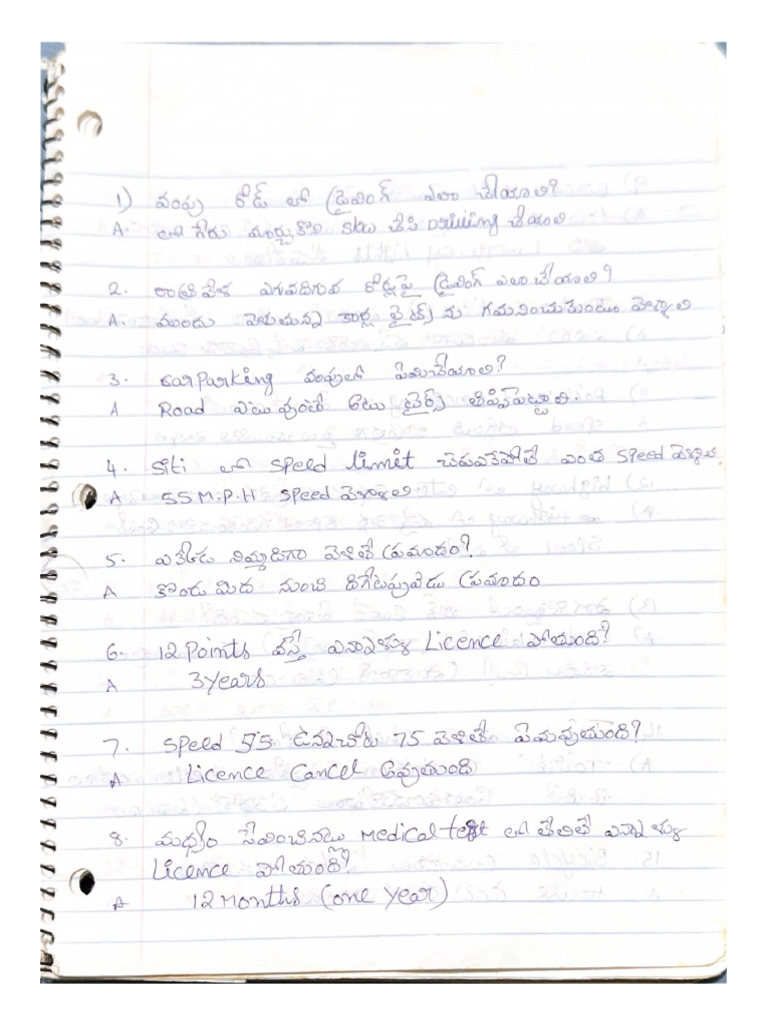 1) వంపు రోడ్ లో డ్రైవింగ్ ఎలా చేయాలి?
A. లో గేరు మార్చుకొని slow చేసి Driving చేయాలి
2. రాత్రివేళ ఎగువదిగువ రోడ్లపై డ్రైవింగ్ ఎలాచేయాలి?
A. ముందు వెళుతున్న కార్ల లైట్స్ ను గమనించుకుంటూ పోవ్వాలి
3. car Parking వంపులో ఏమిచేయాలి?
A Road ఎటువుంతే అటు టైర్స్ తిప్పిపెట్టాలి.
4. Siti లో speed limit చెప్పకపోతే ఎంత speed వెళ్ళాలి
A 55 M.P.H speed వెళ్ళాలి
5. ఎక్కడ నిమ్మదిగా వెళితే ప్రమాదం?
A కొండ మీద నుంచి దిగేటప్పుడు ప్రమాదం
6. 12 Points వస్తే ఎన్నాళ్ళు Licence పోతుంది?
A 3 years
7. speed 55 ఉన్నచోట 75 వెళితే ఏమవుతుంది?
A Licence Cancel అవుతుంది
8. మధ్యం సేవించినట్లు medical test లో తేలితే ఎన్నాళ్ళు
Licence పోతుంది?
A 12 Months (one year)